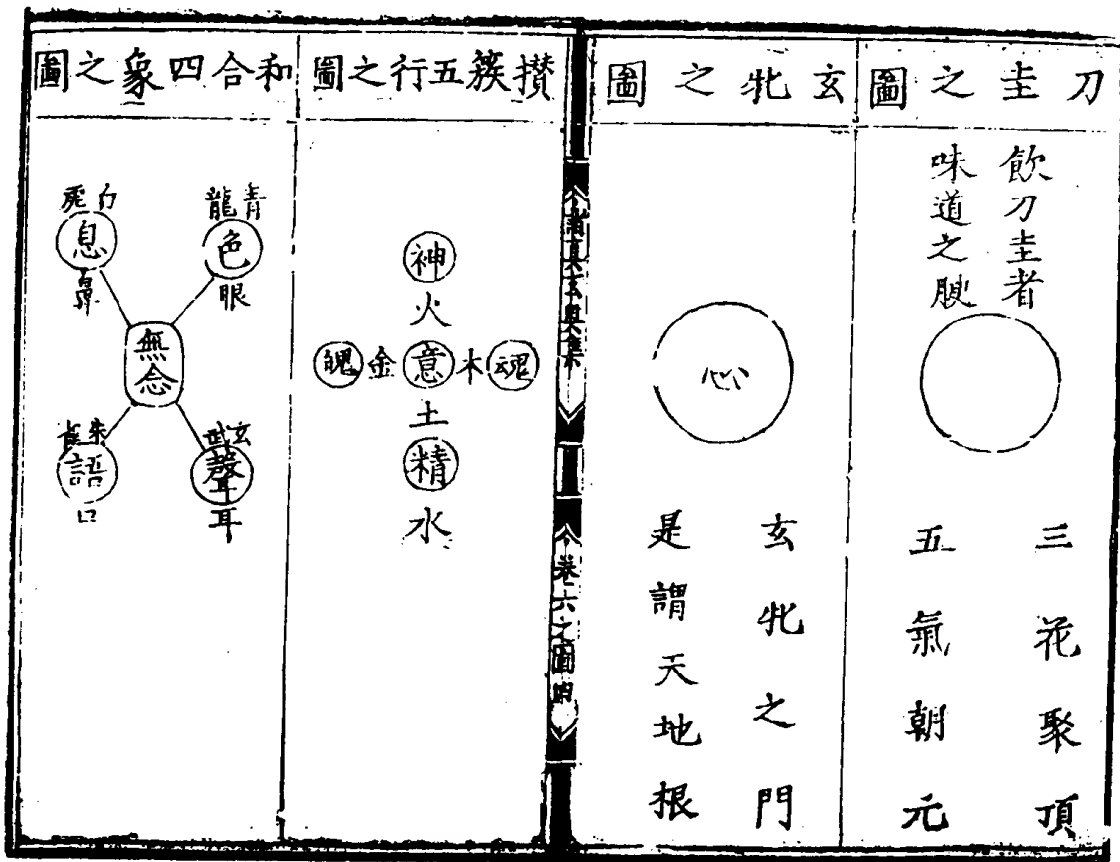 刀圭之圖
飲刀圭者
味道之腴
三花聚頂
五氣朝元
玄牝之圖
心
玄牝之門
是謂天地根
諸真玄奧集
卷六之圖
攅簇五行之圖
神
火
魄金意木魂
土
精
水
和合四象之圖
青龍
色
眼
白虎
息
鼻
無念
玄武
聲
耳
朱雀
語
口